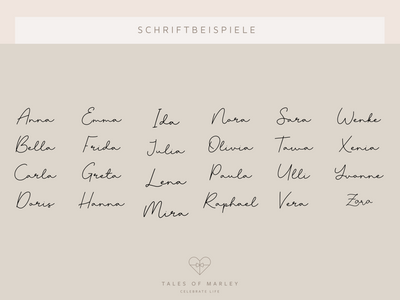 SCHRIFTBEISPIELE
Anna Emma Ida Nora Sara Wenke
Bella Frida Julia Olivia Tawa Xenia
Carla Greta Lena Paula Ulli Yvonne
Doris Hanna Mira Raphael Vera Zora
TALES OF MARLEY
CELEBRATE LIFE